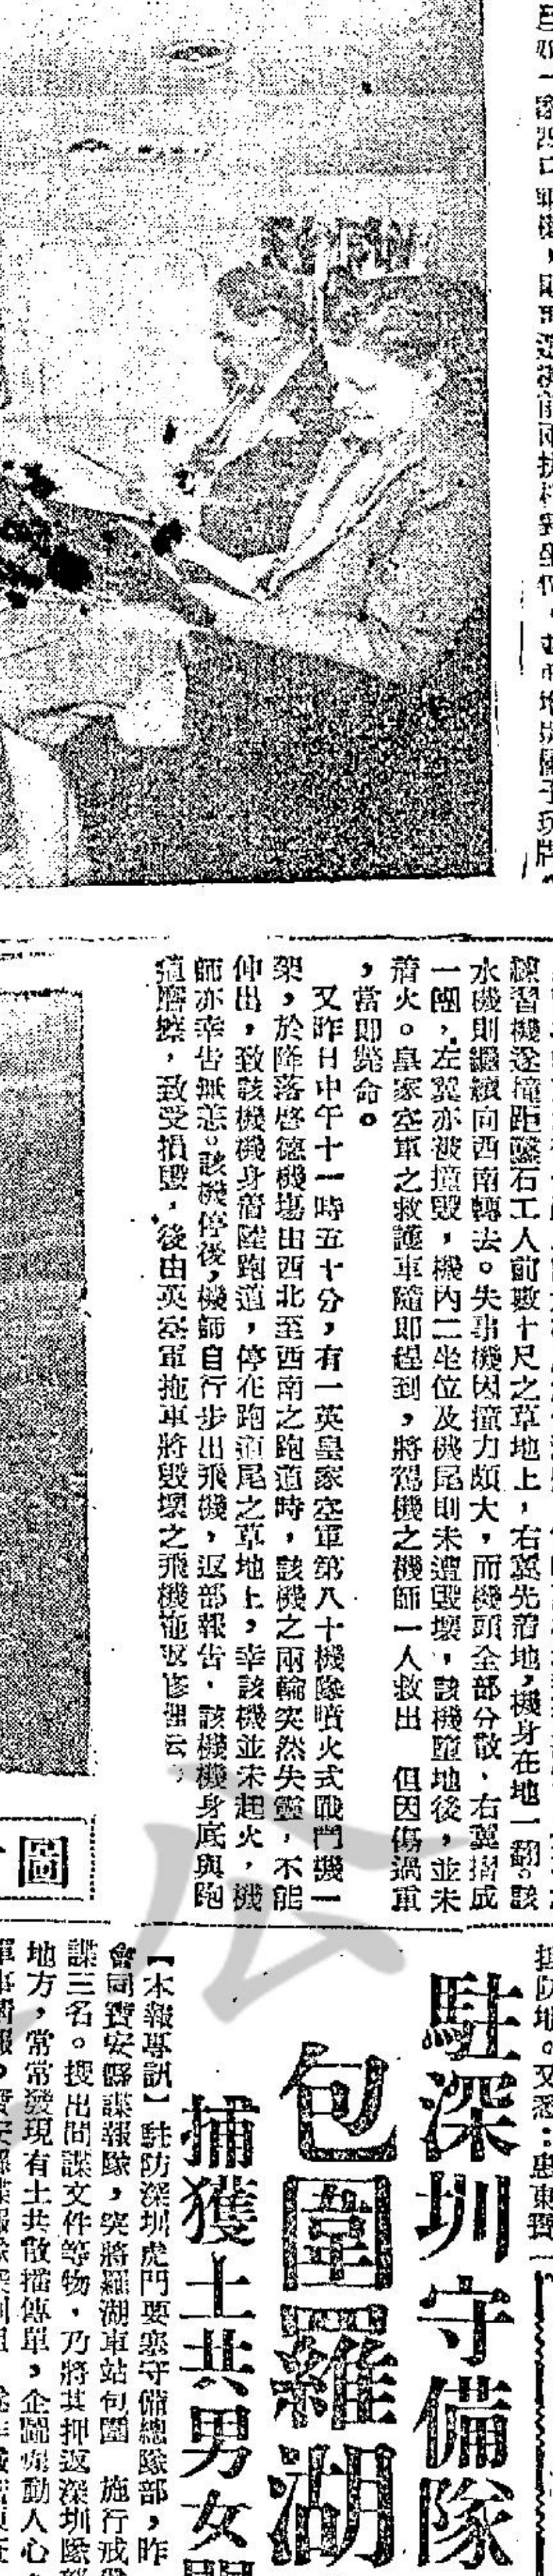 練習機遂撞距鑿石工人前數十尺之草地上，右翼先着地，機身在地一翻。該
水機則繼續向西南轉去。失事機因撞力頗大，而機頭全部分散，右翼摺成
一團，左翼亦被撞毀，機內二坐位及機尾則未遭毀壞，該機墮地後，並未
着火。皇家空軍之救護車隨即趕到，將駕機之機師一人救出　但因傷過重
，當即斃命。
又昨日中午十一時五十分，有一英皇家空軍第八十機隊噴火式戰鬥機一
架，於降落啓德機場由西北至西南之跑道時，該機之兩輪突然失靈，不能
伸出，致該機機身着陸跑道，停在跑道尾之草地上，幸該機並未起火，機
師亦幸告無恙。該機停後，機師自行步出飛機，返部報告，該機機身底與跑
道磨擦，致受損毀，後由英空軍拖車將毀壞之飛機拖返修理云。
圖
防地。又悉：惠東寶
駐深圳守備隊
包圍羅湖
捕獲土共男女
【本報專訊】駐防深圳虎門要塞守備總隊部，昨
會同寶安縣諜報隊，突將羅湖車站包圍　施行戒嚴
諜三名。搜出間諜文件等物，乃將其押返深圳隊部
地方，常常發現有土共散播傳單，企圖煽動人心，
公